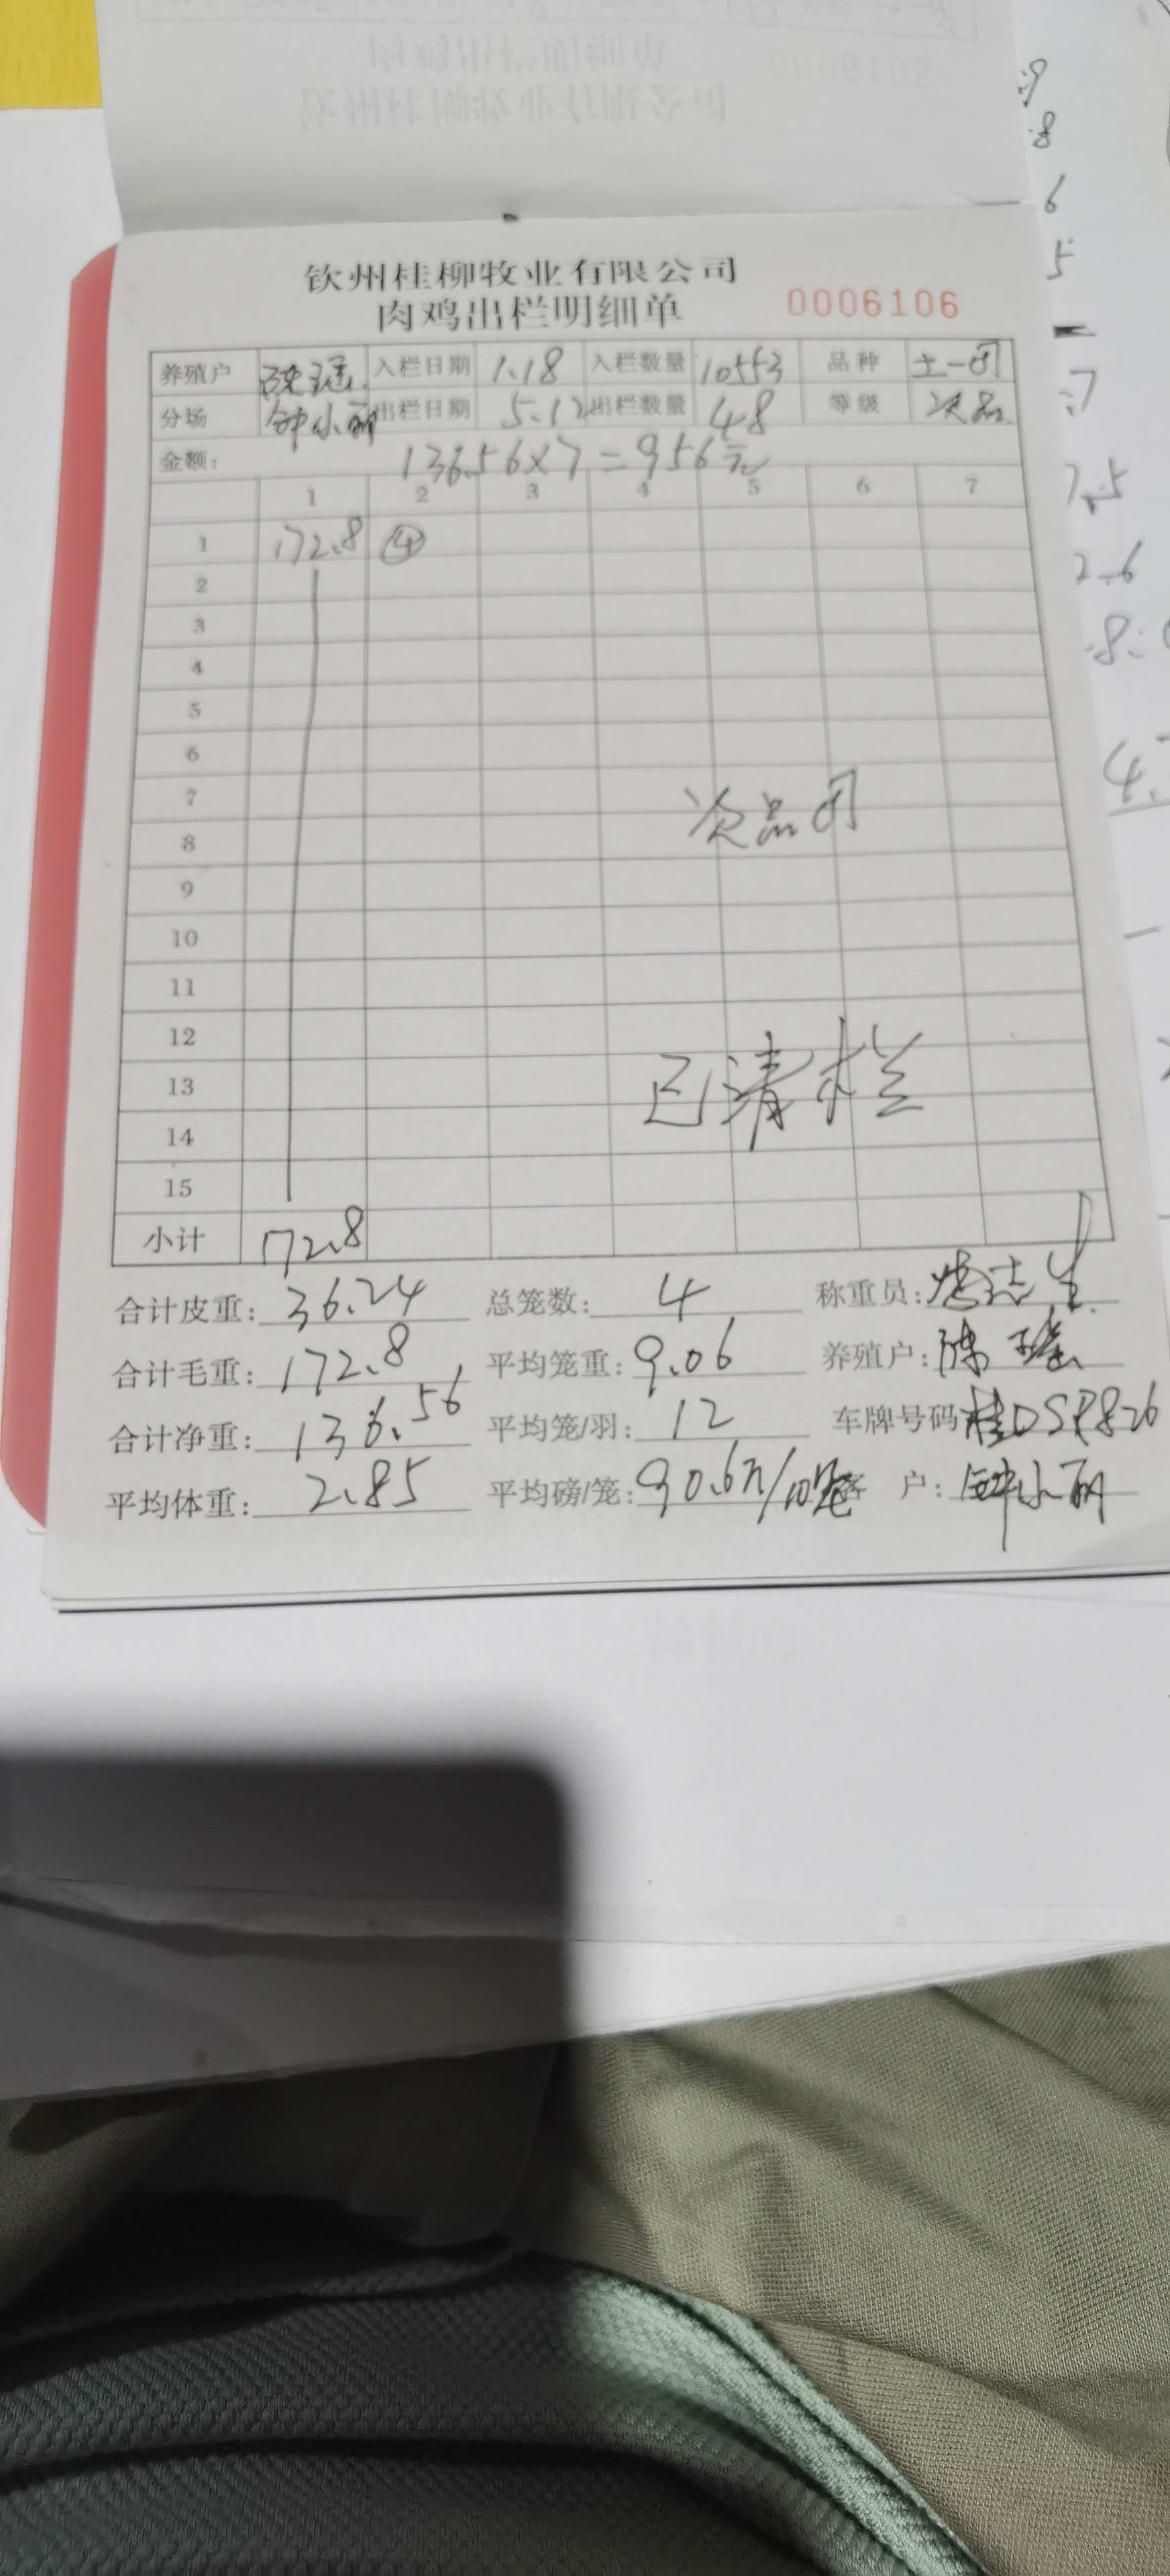 钦州桂柳牧业有限公司
肉鸡出栏明细单 0006106
养殖户 陈瑶 入栏日期 1.18 入栏数量 10553 品种 土一阉
分场 钟小丽 出栏日期 5.12 出栏数量 48 等级 次品
金额: 136.56×7=956元
1 2 3 4 5 6 7
1 172.8 ④
2
3
4
5
6
7 次品阉
8
9
10
11
12
13 已清栏
14
15
小计 172.8
合计皮重: 36.24 总笼数: 4 称重员:
合计毛重: 172.8 平均笼重: 9.06 养殖户: 陈瑶
合计净重: 136.56 平均笼/羽: 12 车牌号码 桂DSR826
平均体重: 2.85 平均磅/笼: 90.6斤/10笼 客户: 钟小丽